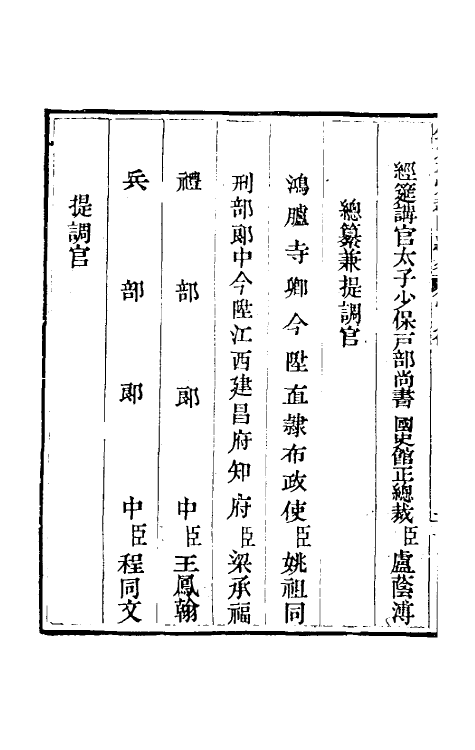 經筵講官太子少保戸部尚書 國史館正總裁臣盧蔭溥
總纂兼提調官
鴻臚寺卿今陞直隸布政使臣姚祖同
刑部郎中今陞江西建昌府知府臣梁承福
禮部郎中臣王鳳翰
兵部郎中臣程同文
提調官